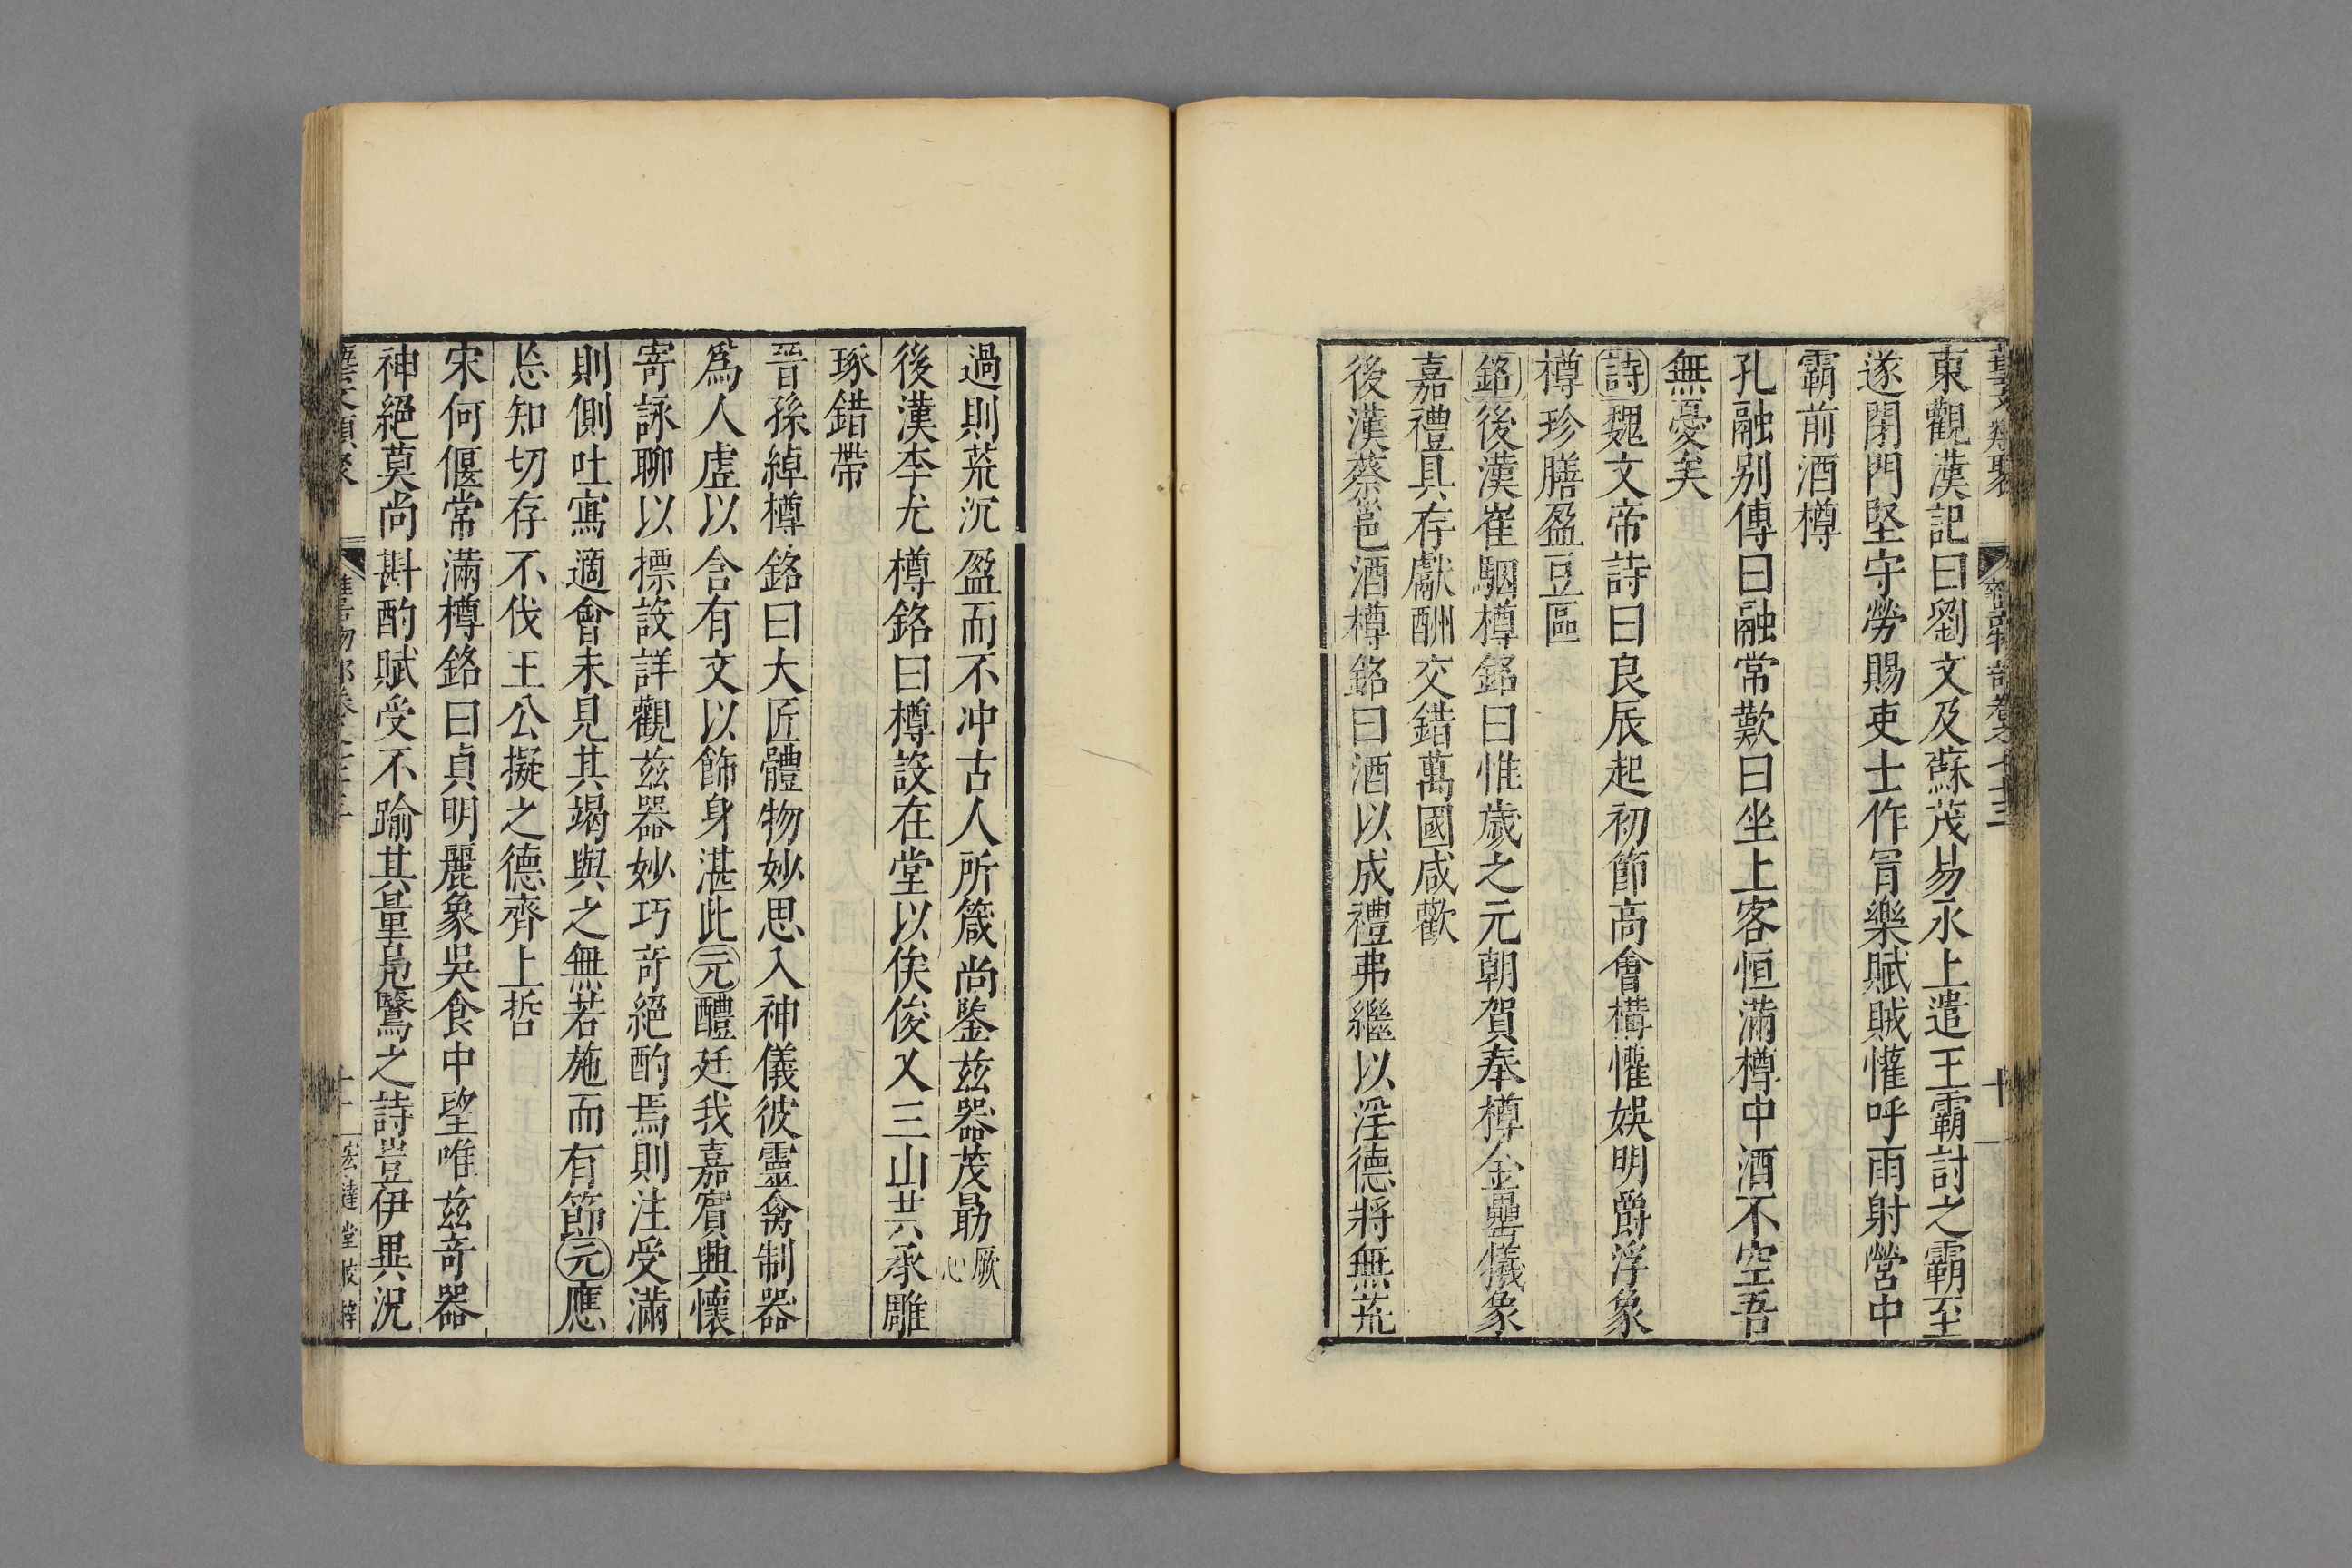 東觀漢記曰劉文及蘇茂易永上遣王霸討之霸至
遂閉門堅守勞賜吏士作冐樂賦賊懽呼雨射營中
霸前酒樽
孔融别傳曰融常歎曰坐上客恒滿樽中酒不空吾
無憂矣
詩魏文帝詩曰良辰起初節高會構懽娛明爵浮象
樽珍膳盈豆區
銘後漢崔駰樽銘曰惟歲之元朝賀奉樽金罍儀象
嘉禮具存獻酬交錯萬國咸歡
後漢蔡邕酒樽銘曰酒以成禮弗繼以淫德將無荒
過則荒沉盈而不冲古人所箴尚鑒兹器茂勗厥心
後漢李尤樽銘曰樽設在堂以俟俊乂三山共承雕
琢錯帶
晉孫綽樽銘曰大匠體物妙思入神儀彼靈禽制器
爲人虛以含有文以飾身湛此元醴廷我嘉賓興懷
寄詠聊以摽設詳觀兹器妙巧奇絕酌焉則注受滿
則側吐寫適會未見其竭與之無若施而有節元應
忩知切存不伐王公擬之德齊上哲
宋何偃常滿樽銘曰貞明麗象吳食中望唯兹奇器
神絕莫尚斟酌賦受不踰其量鳧鷖之詩豈伊異況